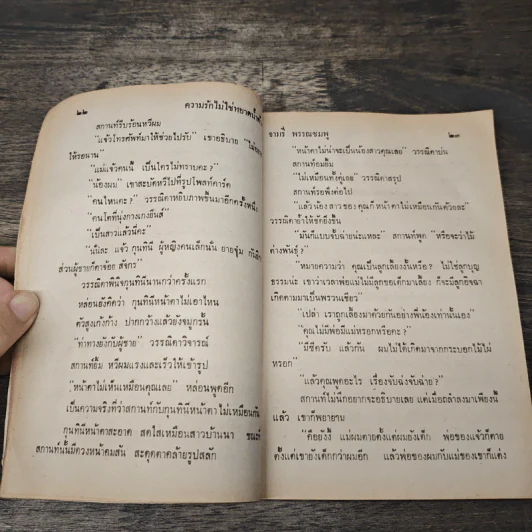 ๒๒ ความรักไม่ใช่หยาดน้ำ
สกานท์รีบร้อนหวีผม
"แจ๋วโทรศัพท์มาให้ช่วยไปรับ" เขาอธิบาย
ให้รอนาน"
"แม่แจ๋วคนนี้ เป็นใครไม่ทราบคะ?"
"น้องผม" เขาสะบัดหวีไปที่รูปโพสท์คาร์ด
"คนไหนคะ?" วรรณิคาหยิบภาพขึ้นมาอีกครั้งหนึ่ง
"คนใดที่นุ่งกางเกงยีนส์"
"เป็นสาวแล้วนี่คะ"
"นี่น่ะ แจ๋ว กุนทินี ผู้หญิงคนเล็กนั่น ยายชุ่ม
ส่วนผู้ชายก็ตาจ้อย สังกร"
วรรณิคาพินิจกุนทินีนานกว่าครั้งแรก
หล่อนยังคิดว่า กุนทินีหน้าตาไม่เอาไหน
ตัวสูงเก้งก้าง ปากกว้างแล้วยังจมูกรั้น
"ท่าทางยังกับผู้ชาย" วรรณิคาวิจารณ์
สกานท์ยิ้ม หวีผมแรงและเร็วให้เข้ารูป
"หน้าตาไม่เห็นเหมือนคุณเลย" หล่อนพูดอีก
เป็นความจริงที่ว่าสกานท์กับกุนทินีหน้าตาไม่เหมือนกัน
กุนทินีหน้าตาสะอาด สดใสเหมือนสาวบ้านนา ขณะที่
สกานท์นั้นมีดวงหน้าคมสัน สะดุดตาคล้ายรูปสลัก
พรรณชมพู ๒๓
"หน้าตาไม่น่าจะเป็นน้องสาวคุณเลย" วรรณิคาบ่น
สกานท์อมยิ้ม
"ไม่เหมือนทั้งคู่เลย" วรรณิคาสรุป
สกานท์รอฟังต่อไป
"แล้วน้องสาวของคุณก็หน้าตาไม่เหมือนกันด้วยละ"
วรรณิคาย้ำให้ชัดยิ่งขึ้น
"มันก็แบบจับฉ่ายน่ะแหละ" สกานท์พูด "หรือจะว่าไม้
ต่างพันธุ์?"
"หมายความว่า คุณเป็นลูกเลี้ยงงั้นหรือ? ไม่ใช่ลูกบุญ
ธรรมน่ะ เขาว่าเวลาพ่อแม่ไม่มีลูกขอเด็กมาเลี้ยง ก็จะมีลูกอิจฉา
เกิดตามมาเป็นพรวนเชียว"
"เปล่า เราถูกเลี้ยงมาด้วยกันอย่างพี่น้องเท่านั้นเอง"
"คุณไม่มีพ่อมีแม่หรอกหรือคะ?"
"มีซีครับ แล้วกัน ผมไม่ได้เกิดมาจากกระบอกไม้ไผ่
หรอก"
"แล้วคุณพูดอะไร เรื่องจับฉ่งจับฉ่าย?"
สกานท์ไม่นึกอยากจะอธิบายเลย แต่เมื่อถลำลงมาเพียงนี้
แล้ว เขาก็พยายาม
"คืออย่างงี้ แม่ผมตายตั้งแต่ผมยังเด็ก พ่อของแจ๋วก็ตาย
ตั้งแต่เขายังเด็กกว่าผมอีก แล้วพ่อของผมกับแม่ของเขาก็แต่ง